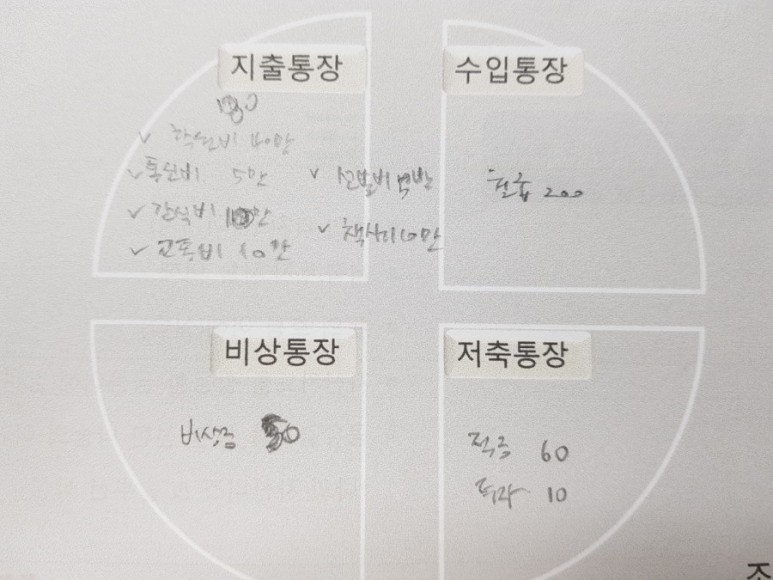 지출통장
✓ 학원비 40만
✓ 통신비 5만
✓ 간식비 10만
✓ 교통비 10만
✓ 신발비
✓ 책사기 10만
수입통장
월급 200
비상통장
비상금
저축통장
적금 60
투자 10